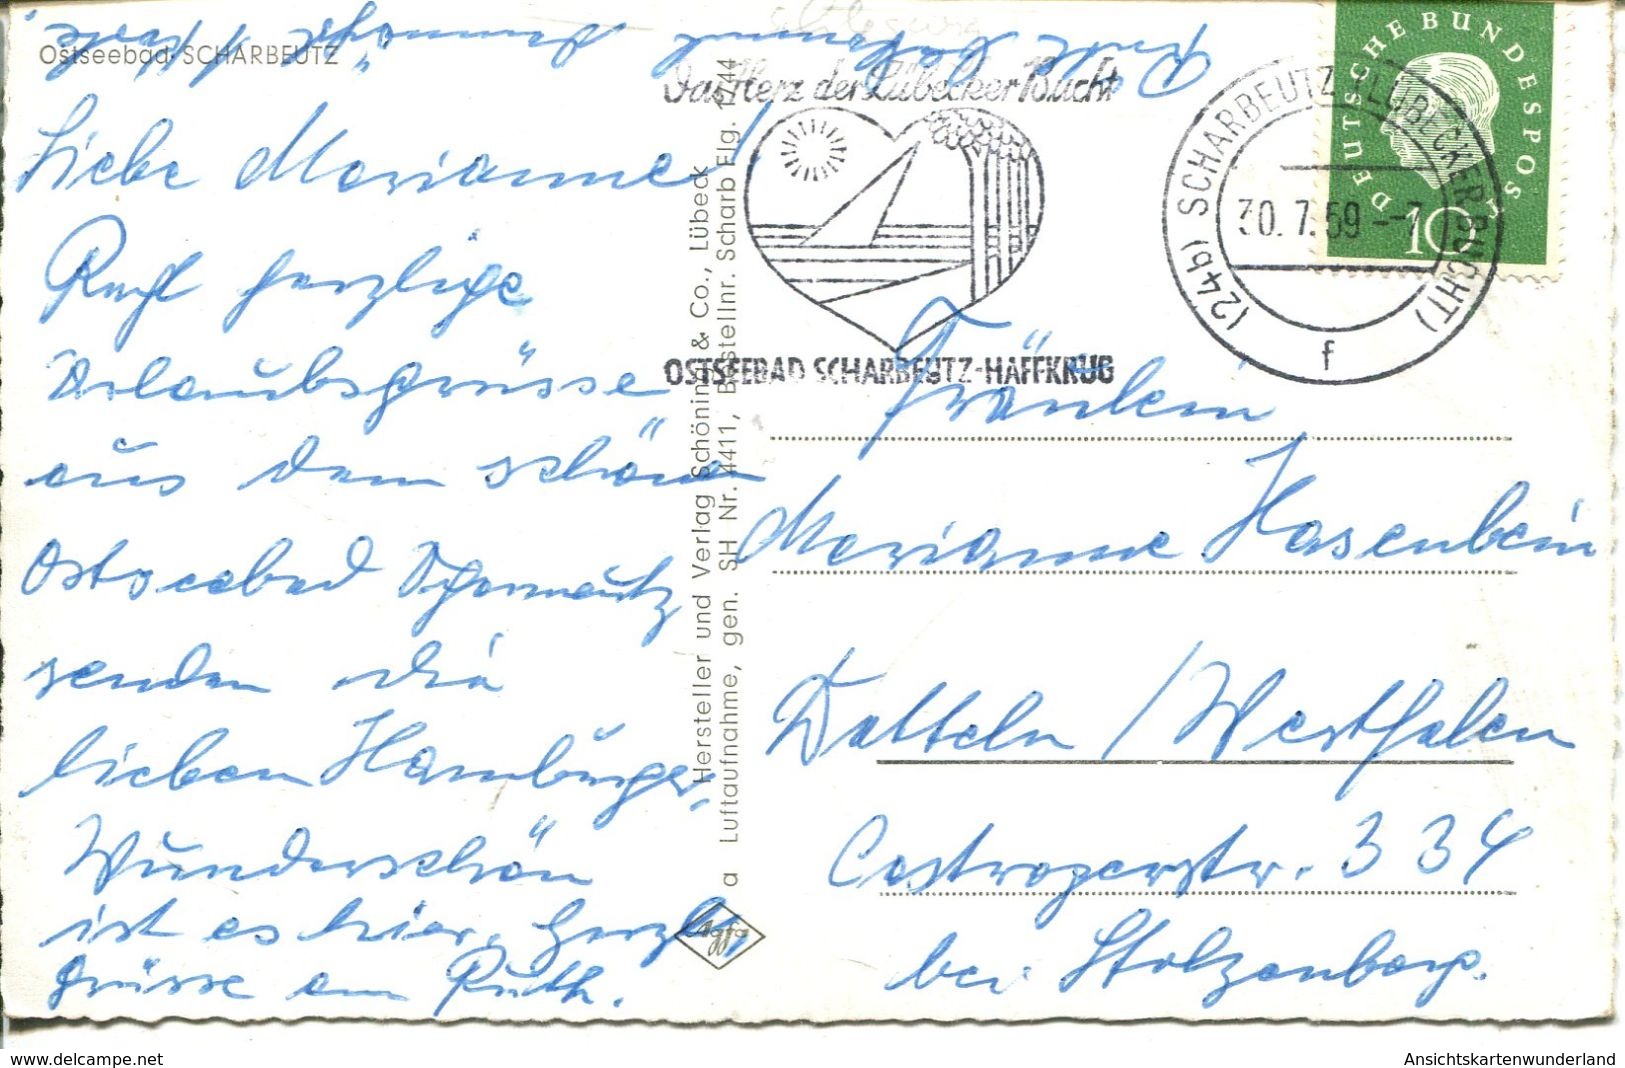 Ostseebad SCHARBEUTZ
Liebe Marianne!
Recht herzliche
Urlaubsgrüsse
aus dem schönen
Ostseebad Scharbeutz
senden die
lieben Hamburger.
Wunderschön
ist es hier. Herzl.
Grüsse an Ruth.
Hersteller und Verlag Schöning & Co., Lübeck
Luftaufnahme, gen. SH Nr. 4411, Bestellnr. Scharb Flg. 1744
a
Agfa
Das Herz der Lübecker Bucht
OSTSEEBAD SCHARBEUTZ-HAFFKRUG
(24b) SCHARBEUTZ (LÜBECKER BUCHT)
30.7.59 --7
f
DEUTSCHE BUNDESPOST
10
Fräulein
Marianne Hasenbein
Datteln / Westfalen
Castroperstr. 334
bei Stolzenberg.
Ansichtskartenwunderland
www.delcampe.net